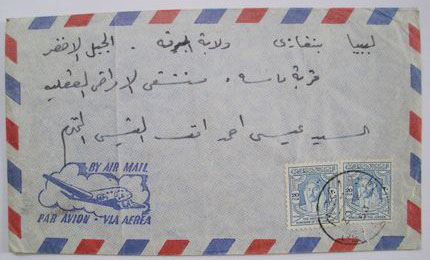 ليبيا بنغازي ولاية برقه . الجبل الاخضر
قرية ماسه . مستشفى الامراض العقليه
السيد عيسى احمد المحترم
BY AIR MAIL
PAR AVION - VIA AEREA